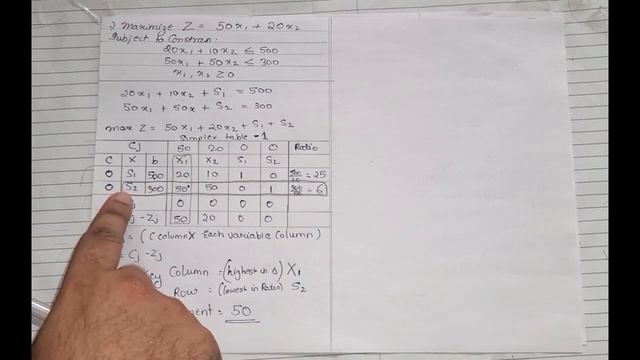 1) Maximize Z = 50x₁ + 20x₂
Subject to Constran:
20x₁ + 10x₂ ≤ 500
50x₁ + 50x₂ ≤ 300
x₁, x₂ ≥ 0
20x₁ + 10x₂ + S₁ = 500
50x₁ + 50x + S₂ = 300
max Z = 50x₁ + 20x₂ + S₁ + S₂
Simplex table - 1
Cj 50 20 0 0 Ratio
C X b X₁ X₂ S₁ S₂
0 S₁ 500 20 10 1 0 500/20 = 25
0 S₂ 300 50 50 0 1 300/50 = 6
j 0 0 0 0
j - Zj 50 20 0 0
= (C column X Each variable Column)
= Cj - Zj
Key Column = (highest in Δ) X₁
Row = (lowest in Ratio) S₂
ment = 50